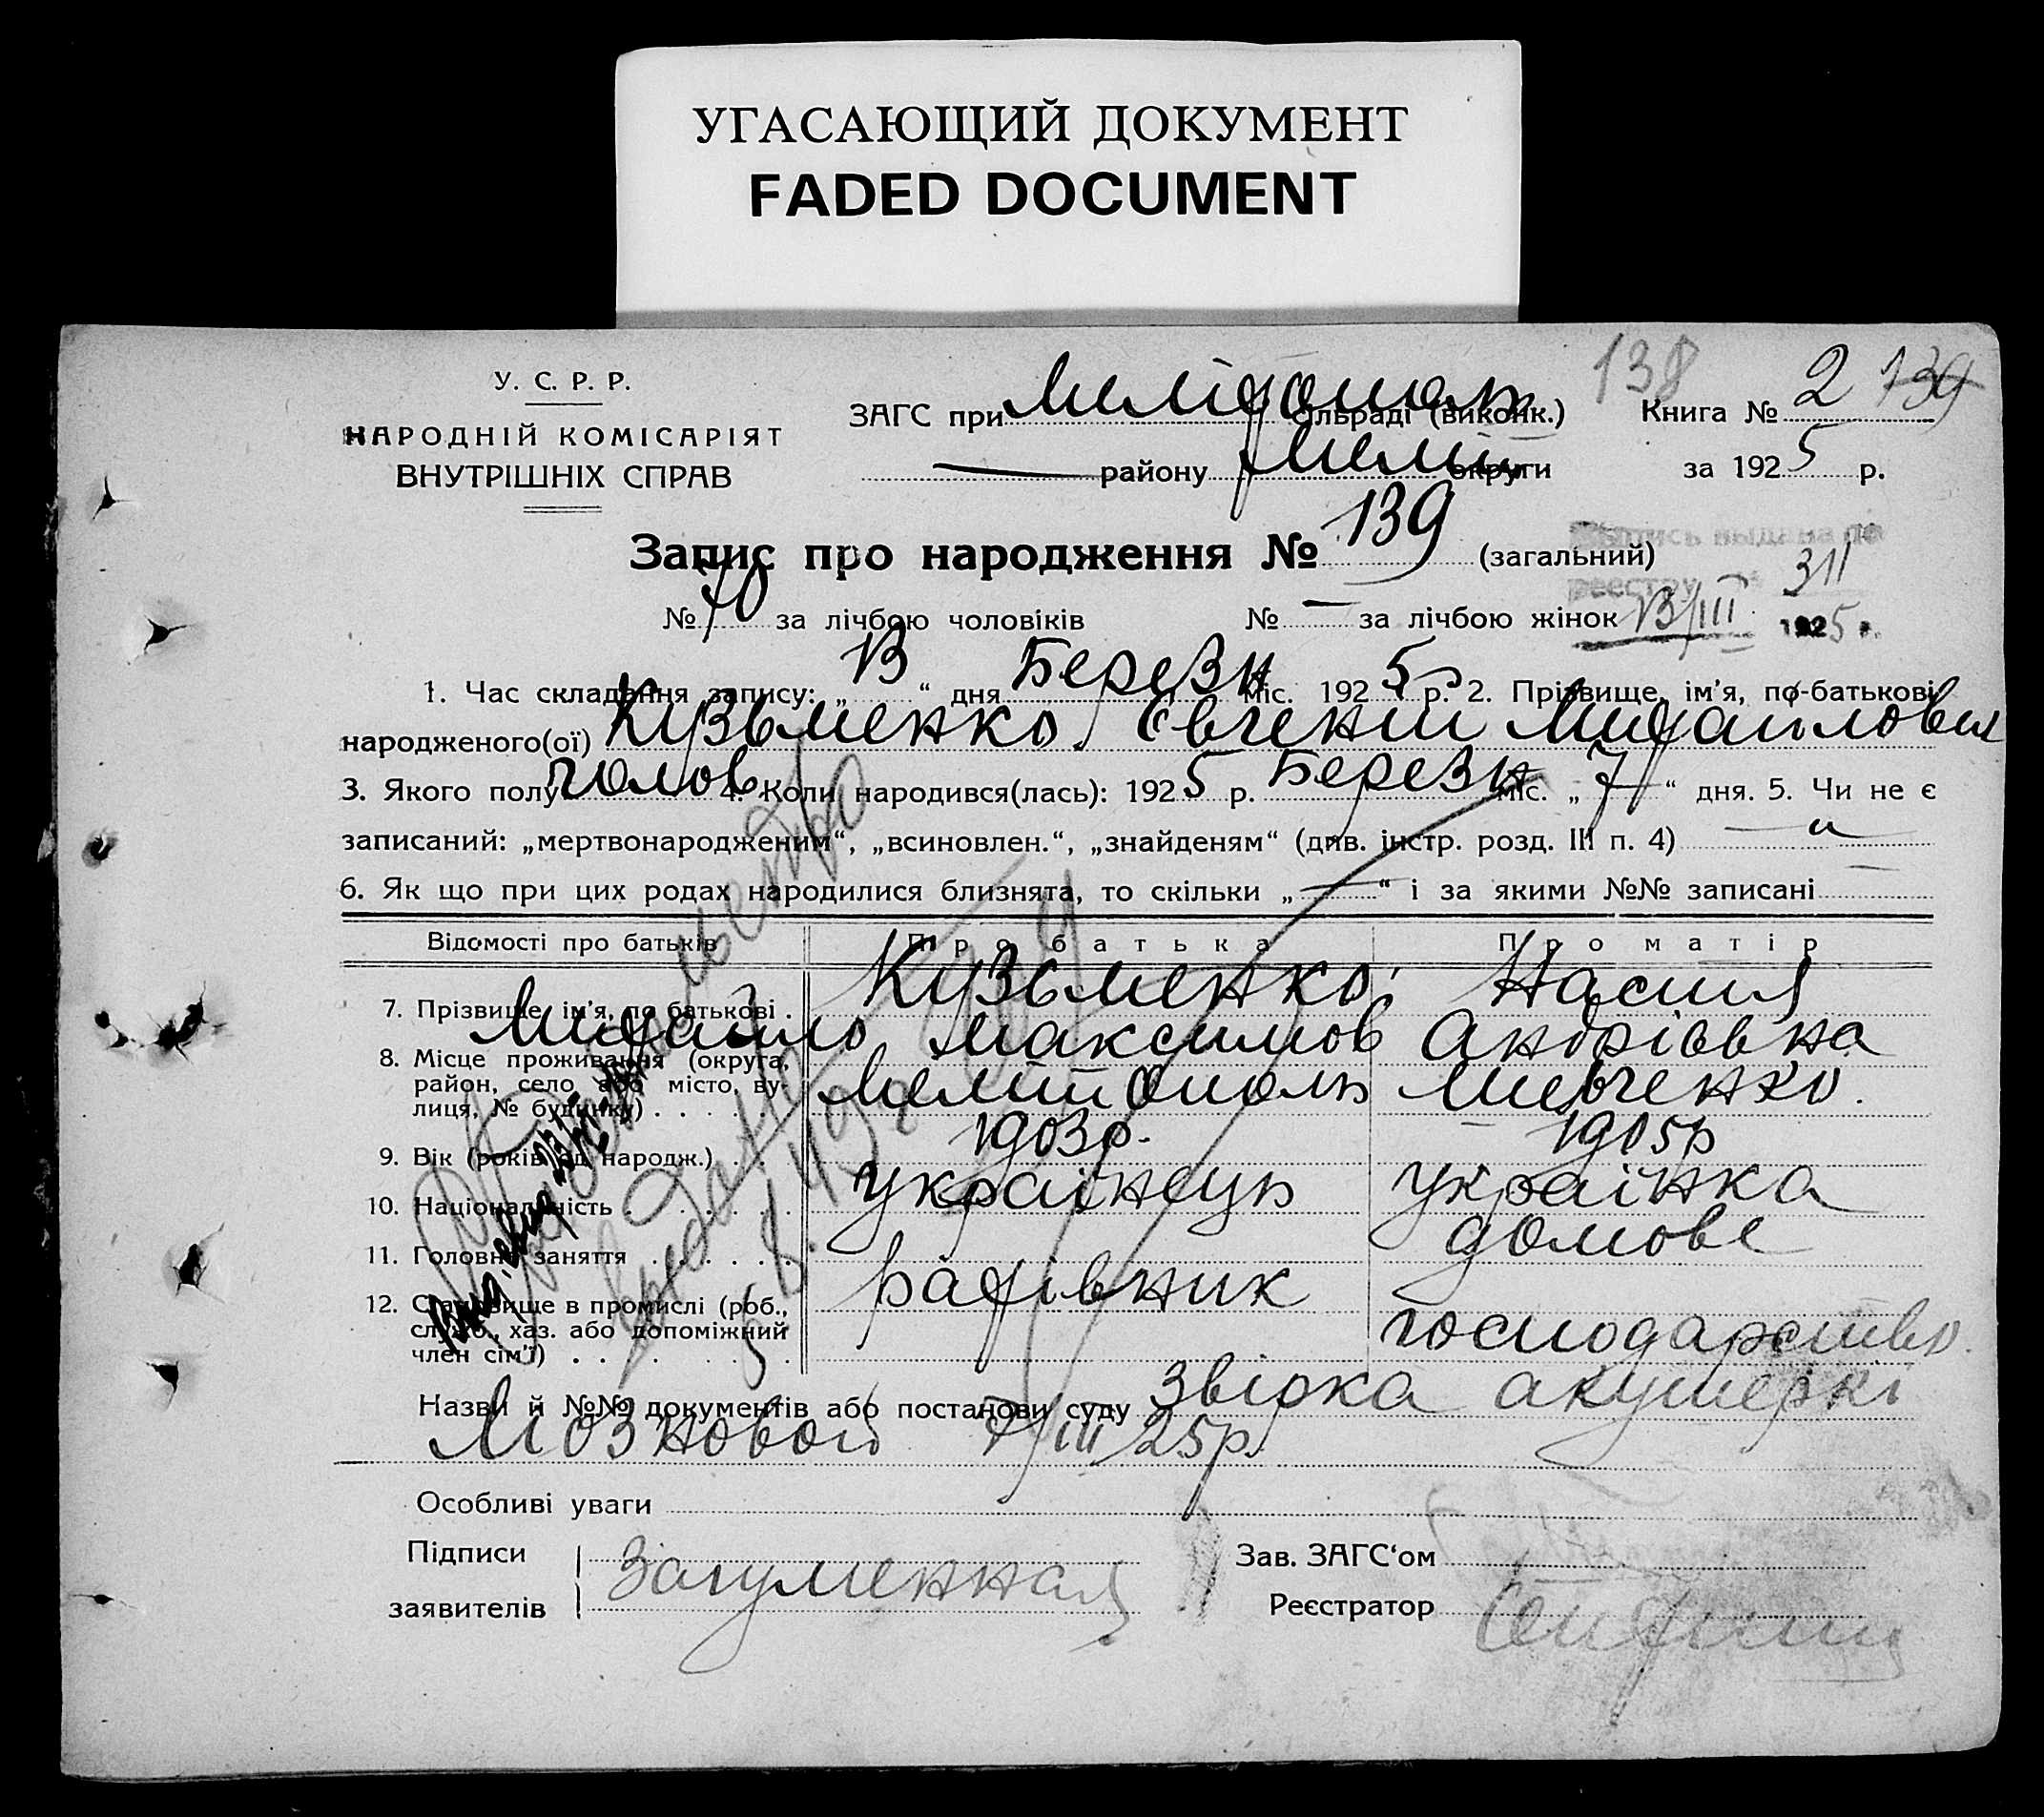 УГАСАЮЩИЙ ДОКУМЕНТ
FADED DOCUMENT
138
У. С. Р. Р.
НАРОДНІЙ КОМІСАРІЯТ
ВНУТРІШНІХ СПРАВ
ЗАГС при Мелітополь сільраді (виконк.) Книга № 2 139
— району Меліт округи за 1925 р.
Запис про народження № 139 (загальний)
Выпись выдана по
реестру 311
13/III 1925 г.
№ 70 за лічбою чоловіків № — за лічбою жінок
1. Час складання запису: „13“ дня Березн міс. 1925 р. 2. Прізвище, ім’я, по-батькові
народженого(ої) Кузьменко Євгеній Михайлович
3. Якого полу чолов 4. Коли народився(лась): 1925 р. Березн міс. „7“ дня. 5. Чи не є
записаний: „мертвонародженим“, „всиновлен.“, „знайденям“ (див. інстр. розд. III п. 4)
6. Як що при цих родах народилися близнята, то скільки „—“ і за якими №№ записані —
Відомості про батьків Про батька Про матір
7. Прізвище, ім’я, по батькові . Кузьменко Михайло Максимов Настя Андріївна
8. Місце проживання (округа,
район, село або місто, ву-
лиця, № будинку) . . . . . Мелітополь Шевченко.
9. Вік (років од народж.) . . 1903р. 1905р
10. Національність . . . . . . українець українка
11. Головне заняття . . . . . . домове
12. Становище в промислі (роб.,
служб., хаз. або допоміжний
член сім’ї) . . . . . . робівник господарство.
Назви й №№ документів або постанови суду Звірка акушеркі
Мозновой 7/III 25р.
Особливі уваги
Підписи
заявителів Загуменная
Зав. ЗАГС‘ом
Реєстратор